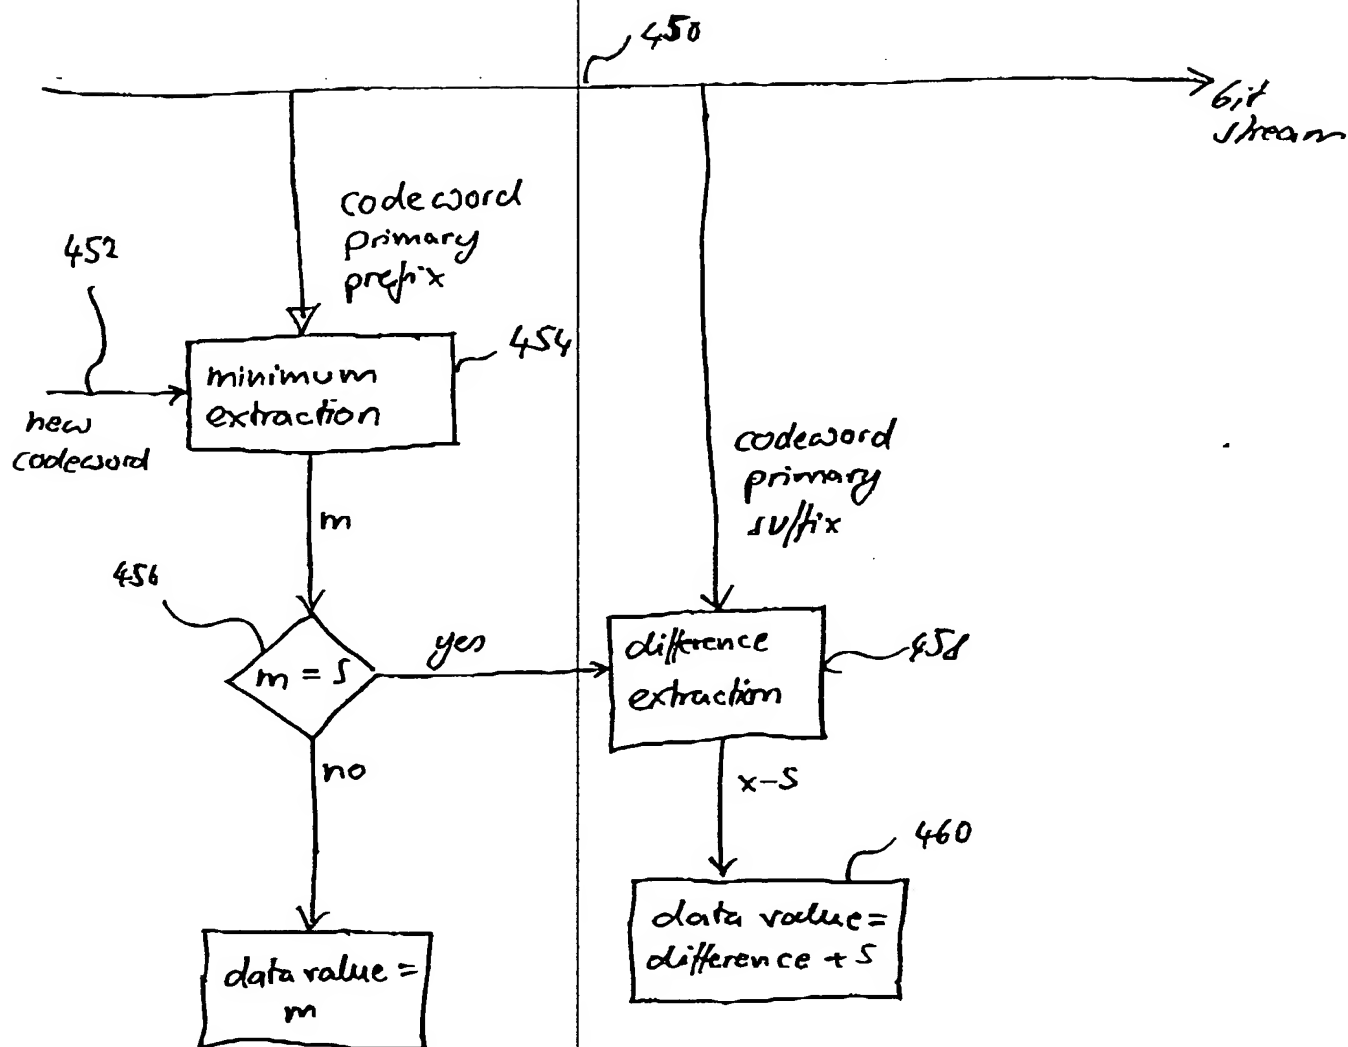 450
bit
stream
codeword
primary
prefix
452
454
minimum
extraction
new
codeword
codeword
primary
suffix
m
456
m = S
yes
difference
extraction
458
no
x-S
460
data value =
difference + S
data value =
m